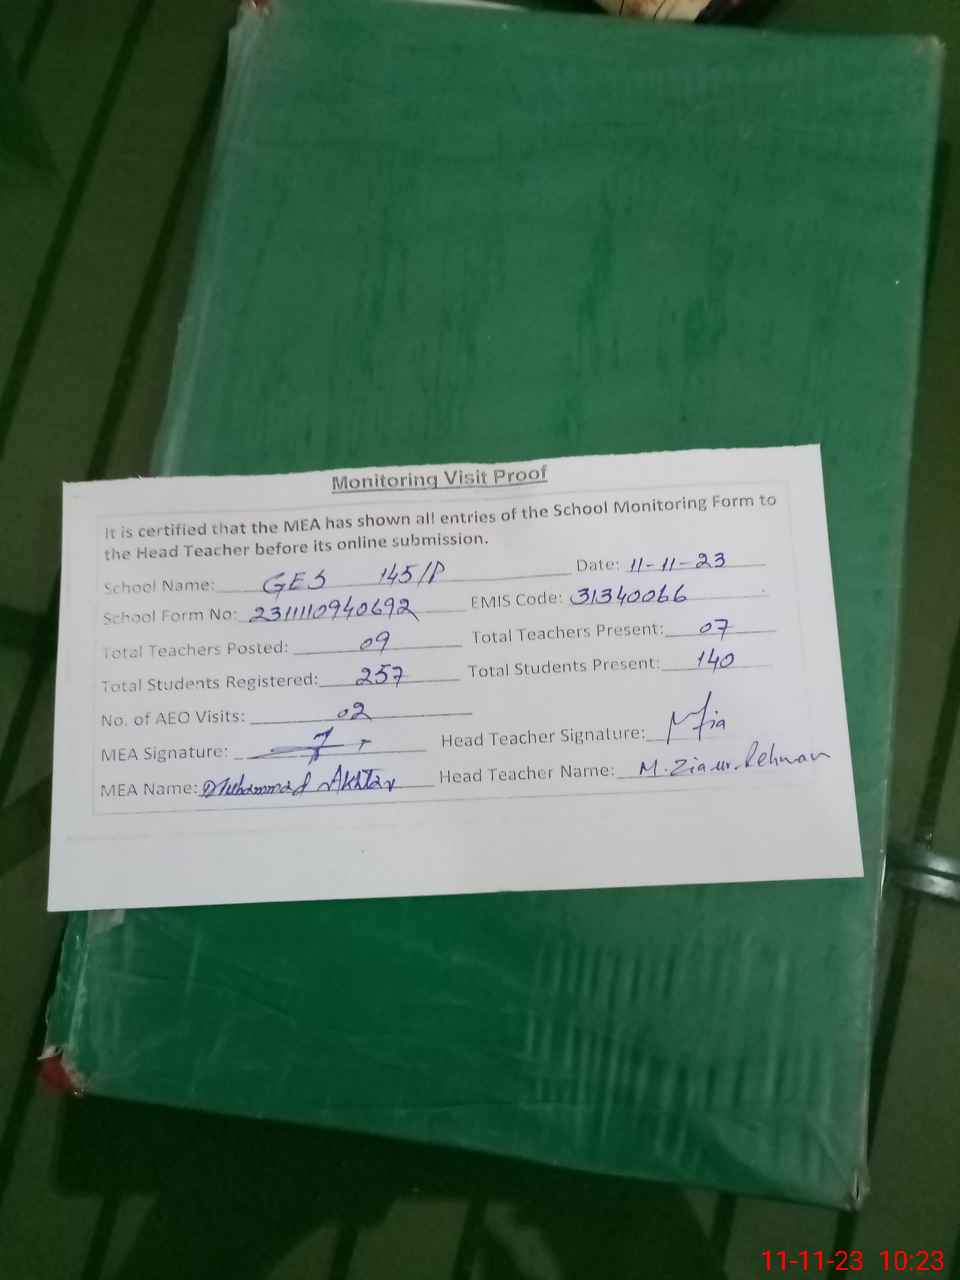 Monitoring Visit Proof
It is certified that the MEA has shown all entries of the School Monitoring Form to
the Head Teacher before its online submission.
School Name: GES 145/P Date: 11-11-23
School Form No: 231110940692 EMIS Code: 31340066
Total Teachers Posted: 09 Total Teachers Present: 07
Total Students Registered: 257 Total Students Present: 140
No. of AEO Visits: 02
MEA Signature: Head Teacher Signature: M Zia
MEA Name: Muhammad Akhtar Head Teacher Name: M. Zia ur Rehman
11-11-23 10:23